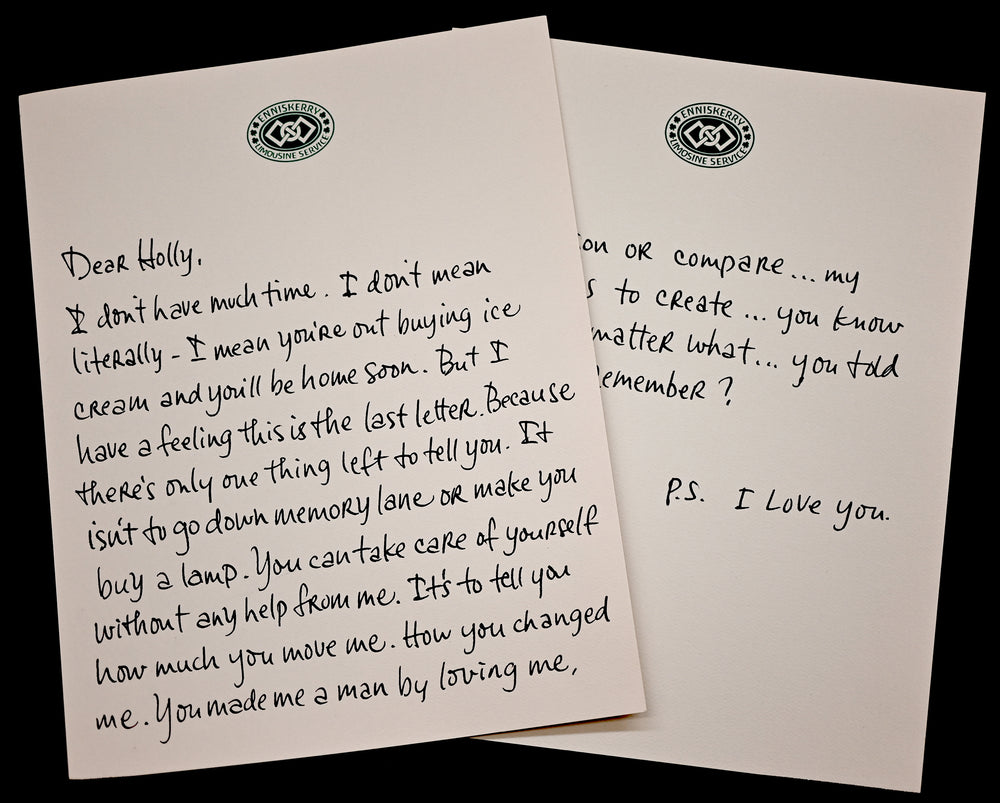 ENNISKERRY
LIMOUSINE SERVICE
Dear Holly,
I don't have much time. I don't mean
literally - I mean you're out buying ice
cream and you'll be home soon. But I
have a feeling this is the last letter. Because
there's only one thing left to tell you. It
isn't to go down memory lane or make you
buy a lamp. You can take care of yourself
without any help from me. It's to tell you
how much you move me. How you changed
me. You made me a man by loving me,
ENNISKERRY
LIMOSINE SERVICE
or compare... my
to create... you know
matter what... you told
remember?
P.S. I Love you.